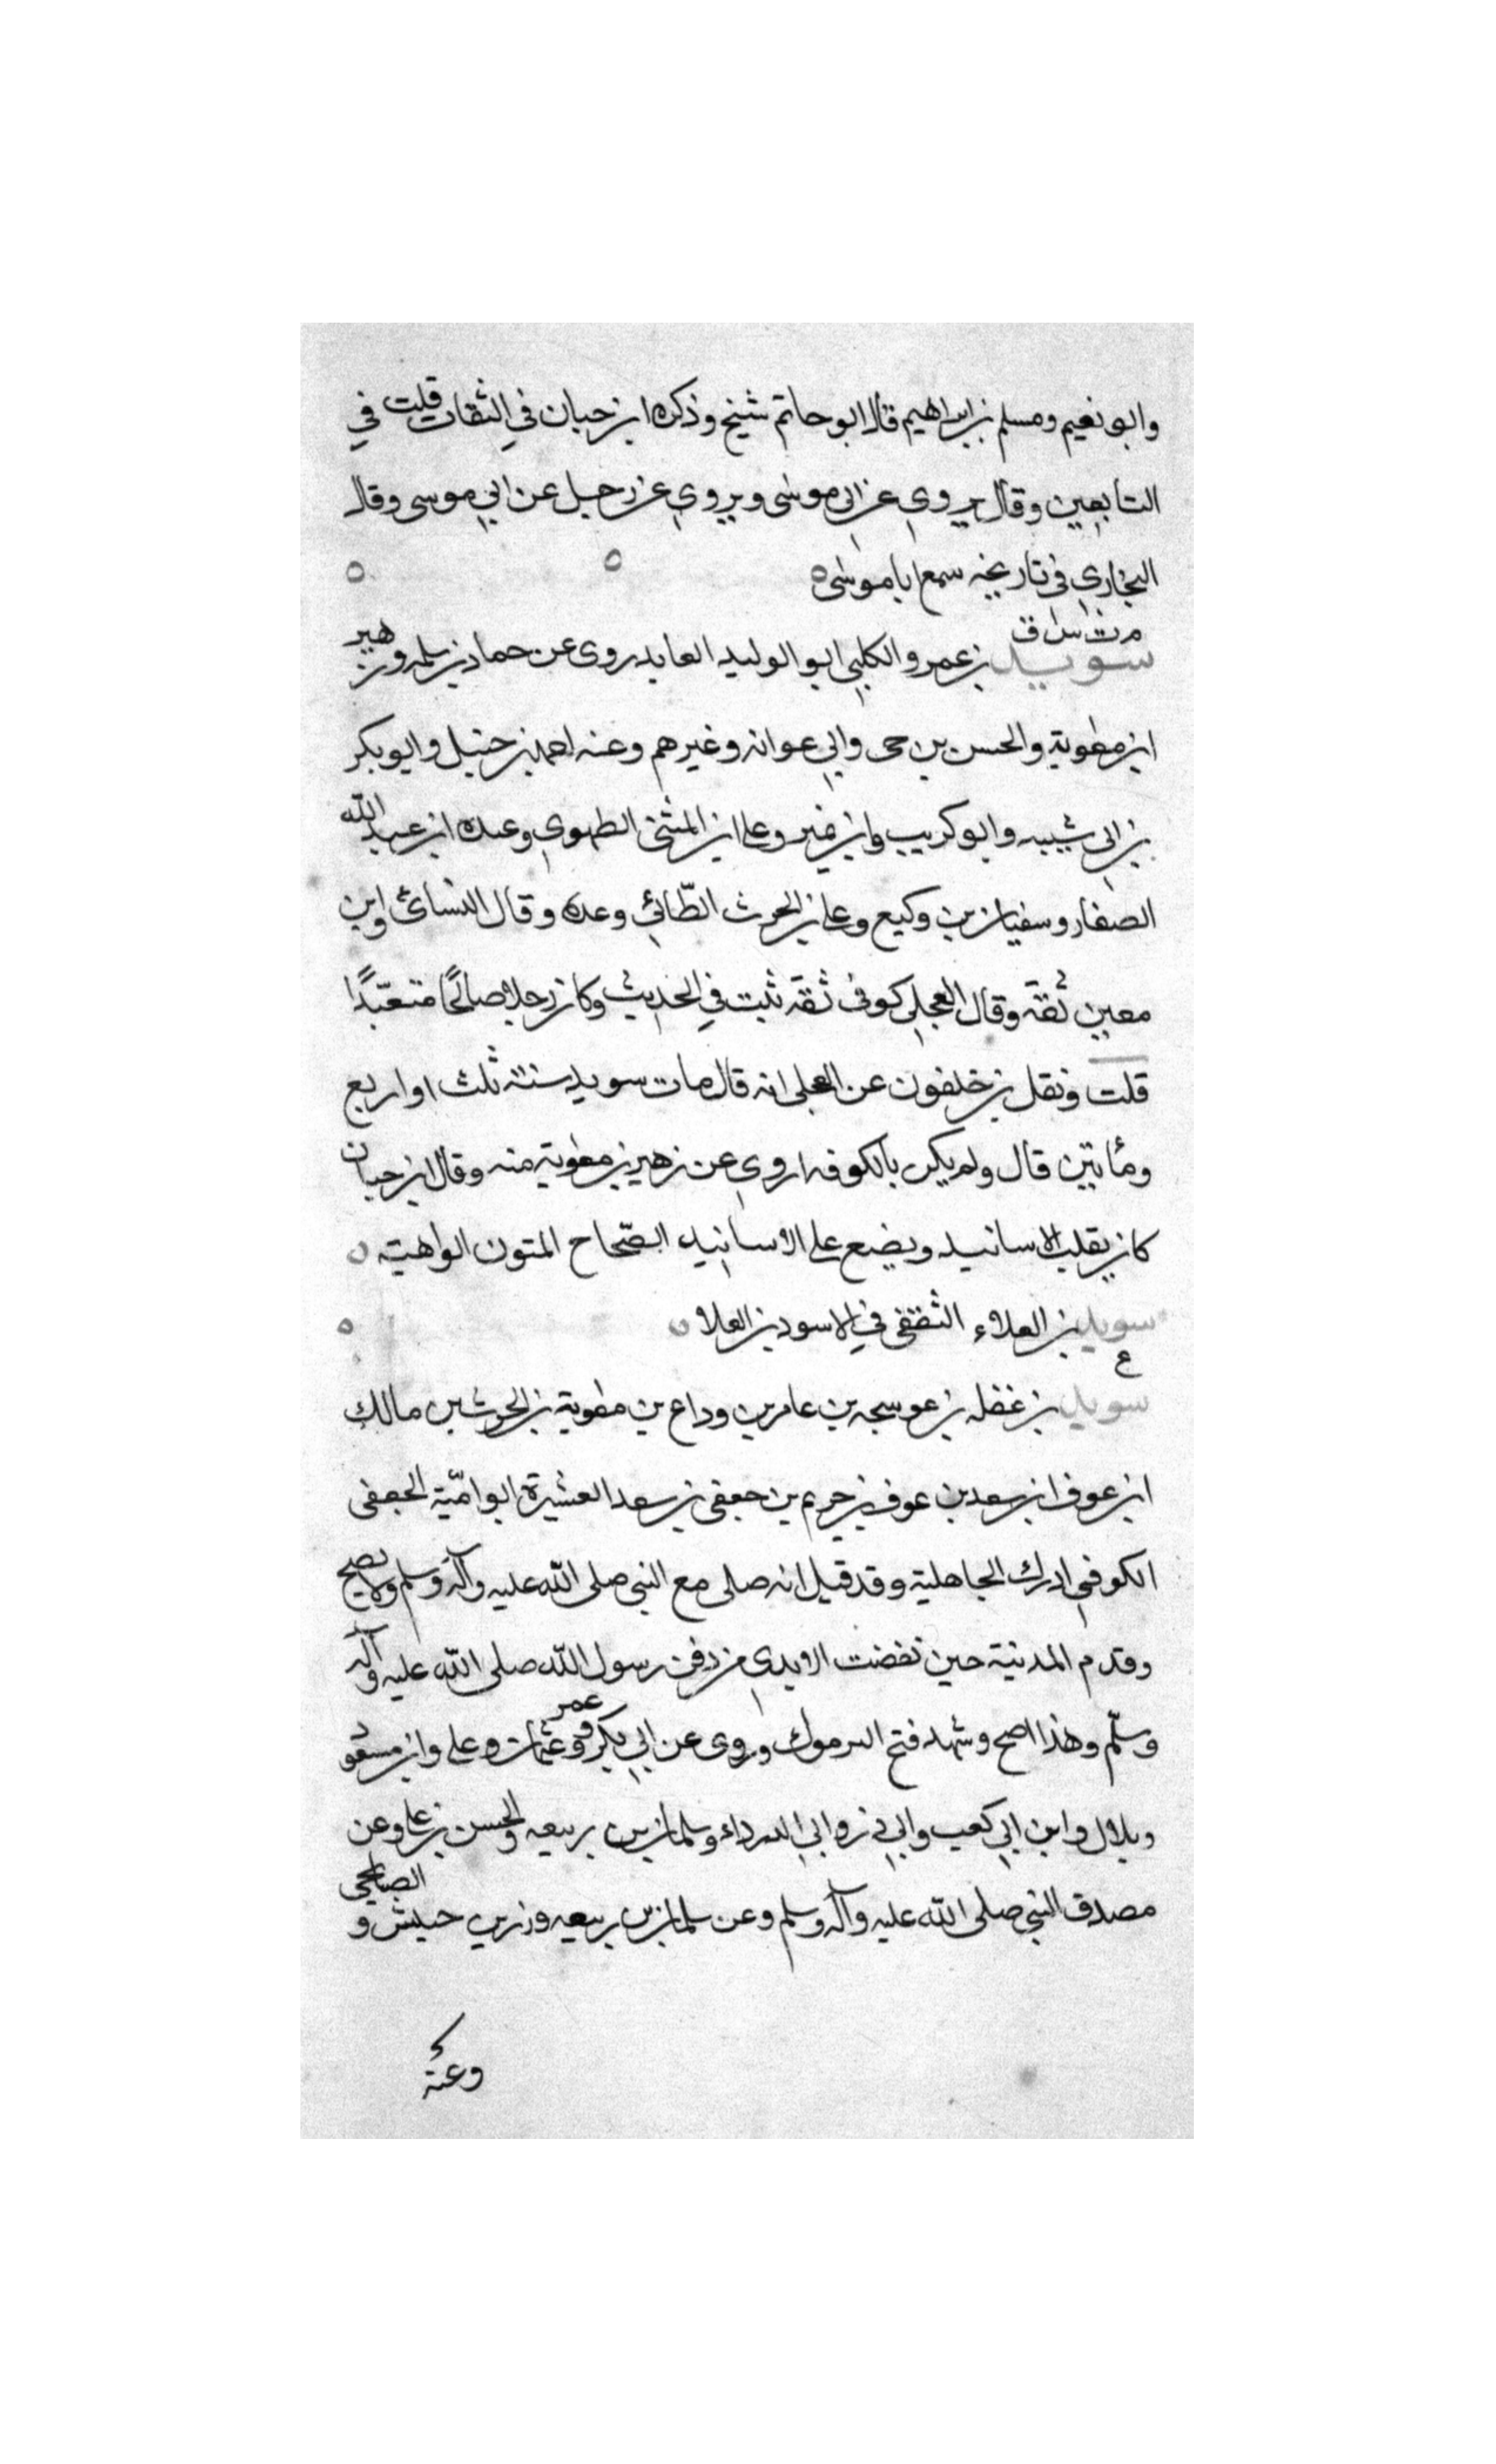 وابو نعيم ومسلم بن ابراهيم قال ابو حاتم شيخ وذكره ابن حبان في الثقات قلت في
التابعين وقال يروي عن ابي موسى ويروي عن رجل عن ابي موسى وقال
البخاري في تاريخه سمع ابا موسى ه ه ه
م ت س ق
سويد بن عمرو الكلبي ابو الوليد العابد روى عن حماد بن سلمه وزهير
ابن معوية والحسن بن حى وابي عوانه وغيرهم وعنه احمد بن حنبل وابو بكر
بن ابي شيبه وابو كريب وابن نمير وعلى ابن المثنى الطهوي وعبده ابن عبد الله
الصفار وسفيان بن وكيع وعلى بن الحرث الطّائي وعده وقال النسائى وابن
معين ثقة وقال العجلي كوفى ثقة ثبت في الحديث وكان رجلا صالحًا متعبّدًا
قلت ونقل بن خلفون عن العجلى انه قال مات سويد سنة ثلث او اربع
ومأتين قال ولم يكن بالكوفه اروي عن زهير بن معوية منه وقال ابن حبان
كان يقلب الاسانيد ويضع على الاسانيد الصّحاح المتون الواهية ه
سويد بن العلاء الثقفى في الاسود بن العلا ه ه
ع
سويد بن غفله بن عوسجه بن عامر بن وداع بن معوية بن الحرث بن مالك
ابن عوف ابن سعد بن عوف بن حريم بن جعفى بن سعد العشيرة ابو اميّة الجعفى
الكوفي ادرك الجاهلية وقد قيل انه صلى مع النبي صلى الله عليه وآله وسلم ولا يصح
وقدم المدنية حين نفضت الايدي من دفن رسول الله صلى الله عليه وآله
وسلّم وهذا اصح وشهد فتح اليرموك وروى عن ابي بكر وعمر وعثمان وعلى وابن مسعود
وبلال وابن ابي كعب وابي ذر وابي الدرداء وسلمان بن ربيعه والحسن بن على وعن
مصدق النبي صلى الله عليه وآله وسلم وعن سلمان بن ربيعه وزر بن حبيش و الصبايحى
وعنه